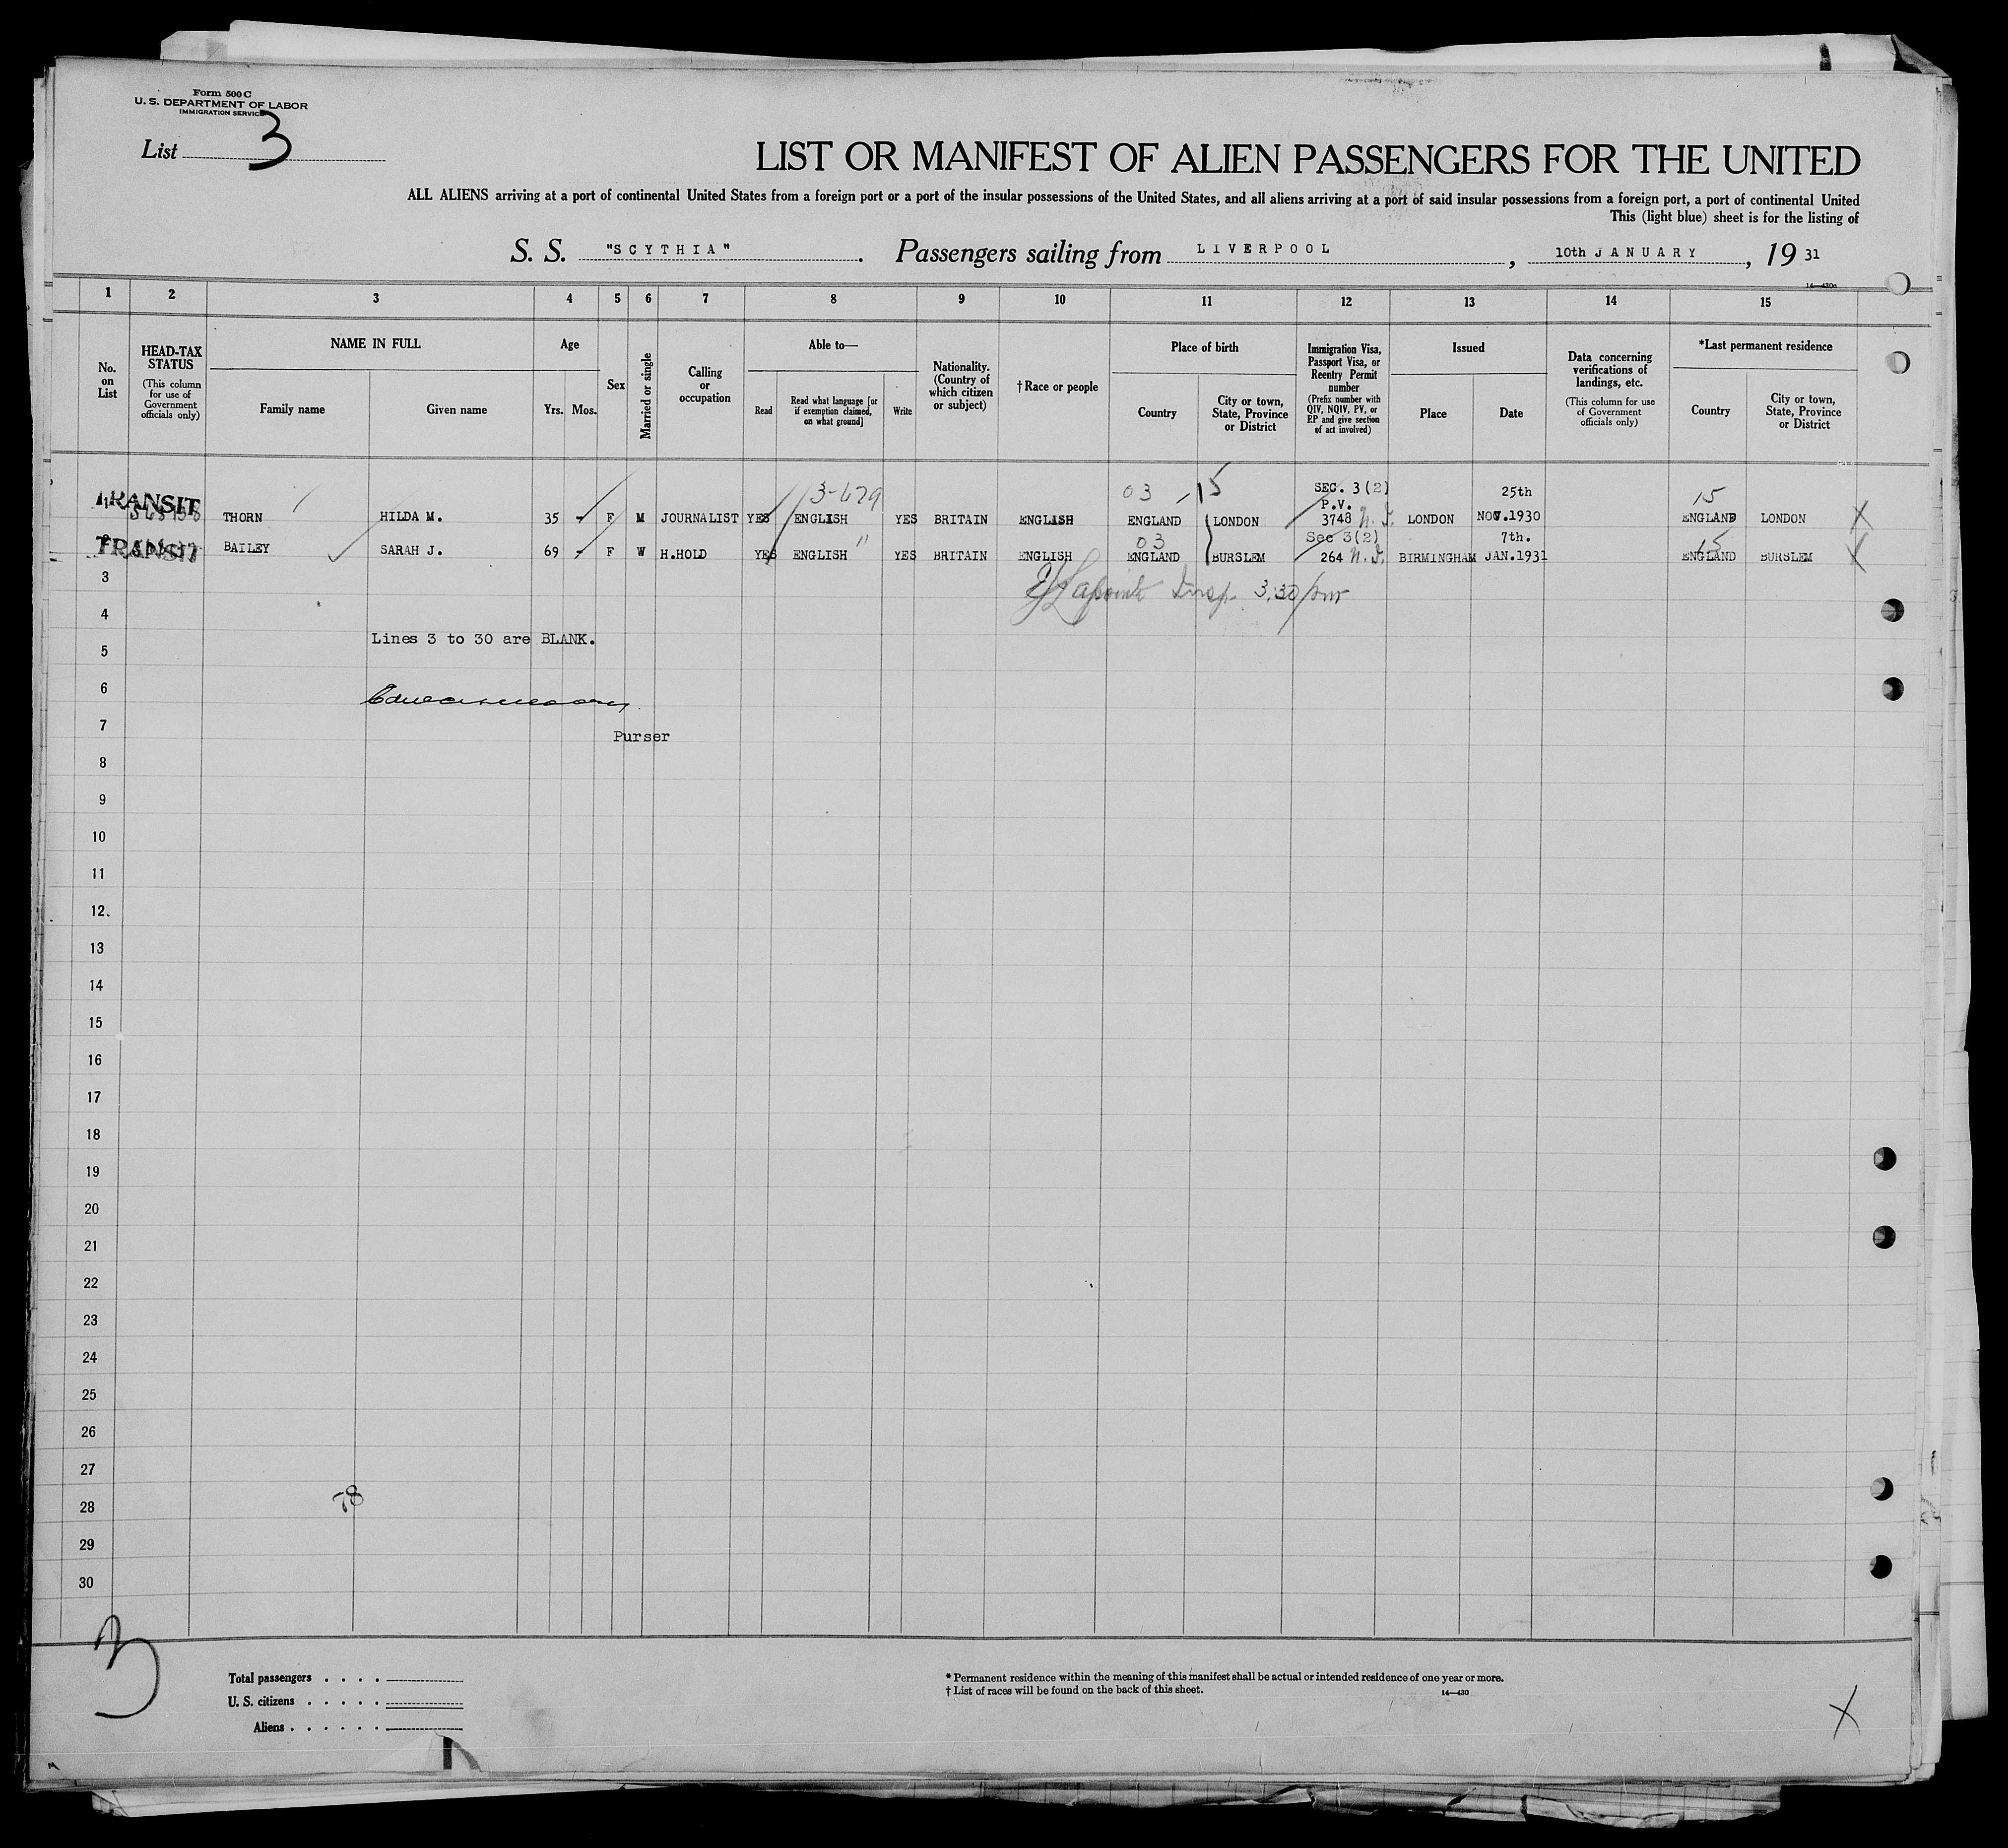 Form 500 C
U. S. DEPARTMENT OF LABOR
IMMIGRATION SERVICE
List 3
LIST OR MANIFEST OF ALIEN PASSENGERS FOR THE UNITED
ALL ALIENS arriving at a port of continental United States from a foreign port or a port of the insular possessions of the United States, and all aliens arriving at a port of said insular possessions from a foreign port, a port of continental United
This (light blue) sheet is for the listing of
S. S. "SCYTHIA". Passengers sailing from LIVERPOOL, 10th JANUARY, 19 31
14—430a
1 2 3 4 5 6 7 8 9 10 11 12 13 14 15
No. on List
HEAD-TAX STATUS (This column for use of Government officials only)
NAME IN FULL
Family name
Given name
Age
Yrs. Mos.
Sex
Married or single
Calling or occupation
Able to—
Read
Read what language [or if exemption claimed, on what ground]
Write
Nationality. (Country of which citizen or subject)
† Race or people
Place of birth
Country
City or town, State, Province or District
Immigration Visa, Passport Visa, or Reentry Permit number (Prefix number with QIV, NQIV, PV, or RP and give section of act involved)
Issued
Place
Date
Data concerning verifications of landings, etc. (This column for use of Government officials only)
*Last permanent residence
Country
City or town, State, Province or District
3-679 03 -15 SEC. 3(2) 25th 15
TRANSIT P.V.
1 THORN HILDA M. 35 - F M JOURNALIST YES ENGLISH YES BRITAIN ENGLISH ENGLAND LONDON 3748 LONDON NOV.1930 ENGLAND LONDON X
03 Sec 3(2) 7th. 15
TRANSIT BAILEY SARAH J. 69 - F W H.HOLD YES ENGLISH " YES BRITAIN ENGLISH ENGLAND BURSLEM 264 BIRMINGHAM JAN.1931 ENGLAND BURSLEM X
3
Lapointe Insp. 3:30 pm
4
Lines 3 to 30 are BLANK.
5
6
7
Purser
8
9
10
11
12
13
14
15
16
17
18
19
20
21
22
23
24
25
26
27
28
78
29
30
3
Total passengers
U. S. citizens
Aliens
* Permanent residence within the meaning of this manifest shall be actual or intended residence of one year or more.
† List of races will be found on the back of this sheet.
14—430
X